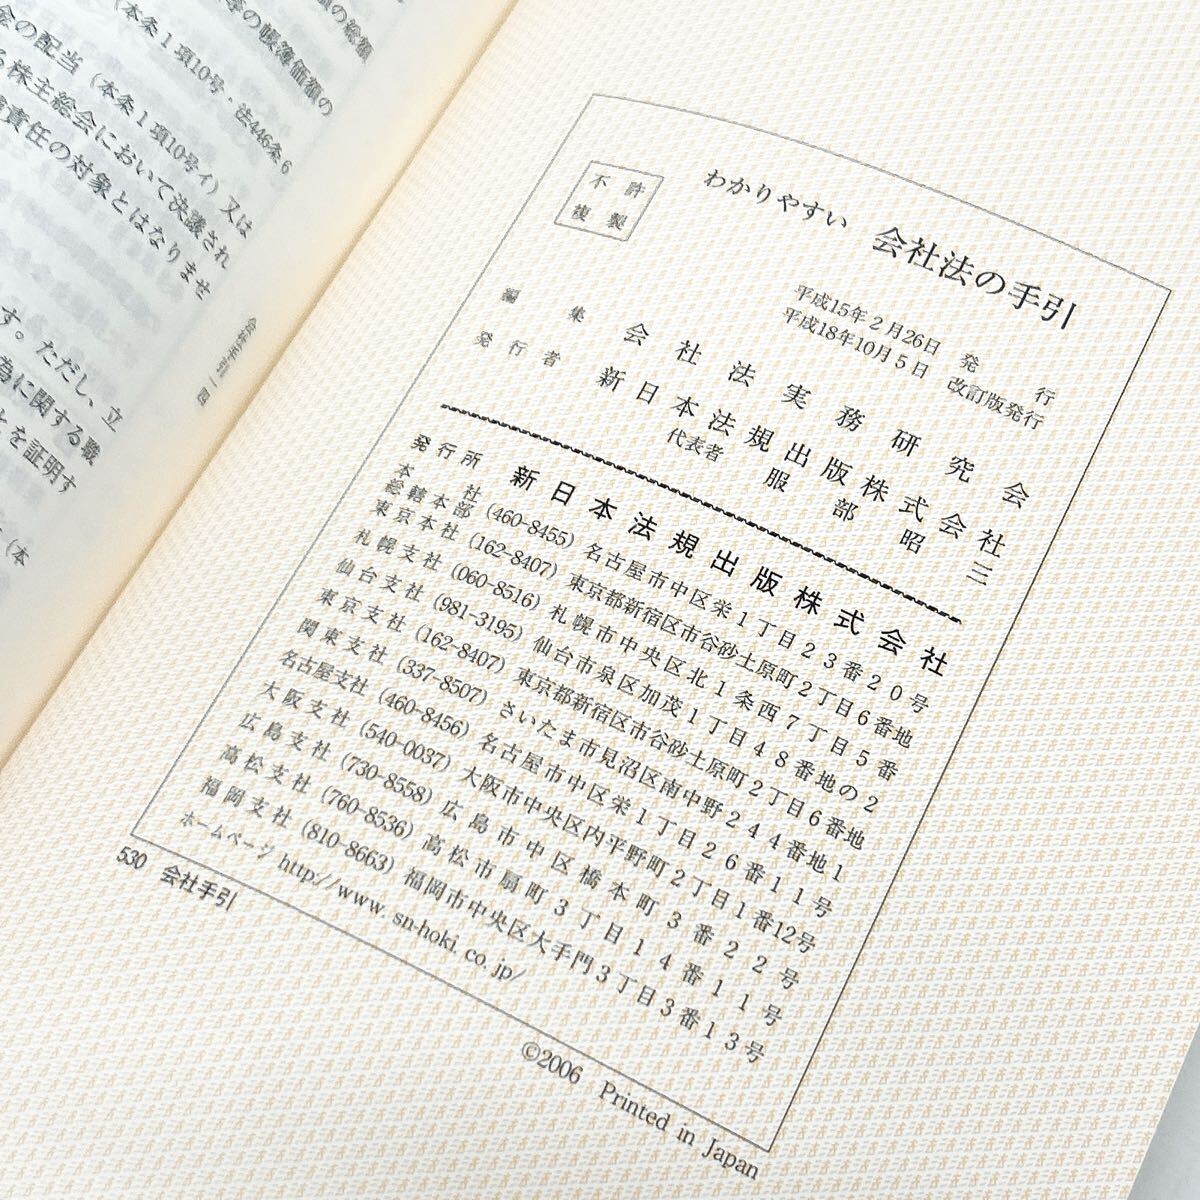 の総額
等の帳簿価額の
(本条1項10号・法446条6
会の配当(本条1項10号イ)又は
る株主総会において決議され
責任の対象とはなりませ
す。ただし、立
為に関する職
とを証明す
(本
会社手引一四
不許
複製
わかりやすい 会社法の手引
平成15年2月26日 発行
平成18年10月5日 改訂版発行
編集 会社法実務研究会
発行者 新日本法規出版株式会社
代表者 服部昭三
発行所 新日本法規出版株式会社
本社
総轄本部 (460-8455) 名古屋市中区栄1丁目23番20号
東京本社 (162-8407) 東京都新宿区市谷砂土原町2丁目6番地
札幌支社 (060-8516) 札幌市中央区北1条西7丁目5番
仙台支社 (981-3195) 仙台市泉区加茂1丁目48番地の2
東京支社 (162-8407) 東京都新宿区市谷砂土原町2丁目6番地
関東支社 (337-8507) さいたま市見沼区南中野244番地1
名古屋支社 (460-8456) 名古屋市中区栄1丁目26番11号
大阪支社 (540-0037) 大阪市中央区内平野町2丁目1番12号
広島支社 (730-8558) 広島市中区橋本町3番22号
高松支社 (760-8536) 高松市扇町3丁目14番11号
福岡支社 (810-8663) 福岡市中央区大手門3丁目3番13号
ホームページ http://www.sn-hoki.co.jp/
530 会社手引
©2006 Printed in Japan